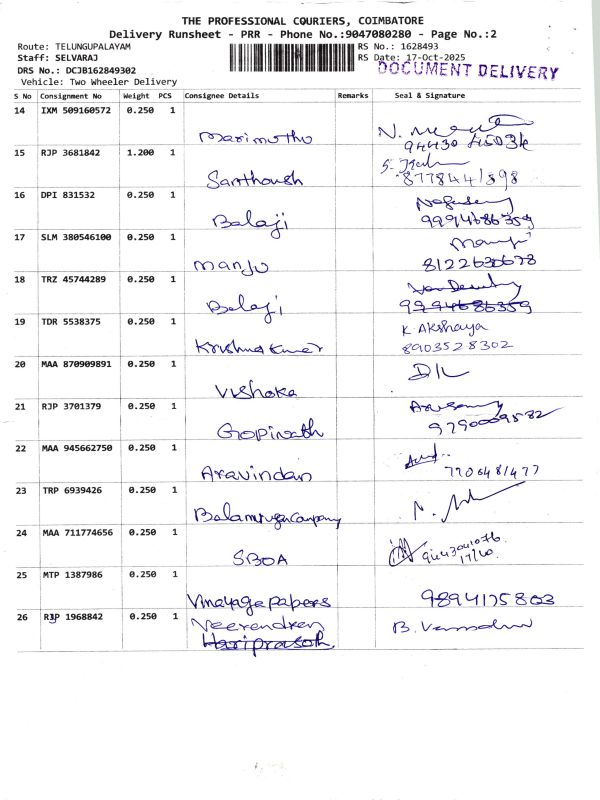 THE PROFESSIONAL COURIERS, COIMBATORE
Delivery Runsheet - PRR - Phone No.:9047080280 - Page No.:2
Route: TELUNGUPALAYAM
RS No.: 1628493
Staff: SELVARAJ
RS Date: 17-Oct-2025
DRS No.: DCJB162849302
DOCUMENT DELIVERY
Vehicle: Two Wheeler Delivery
S No Consignment No Weight PCS Consignee Details Remarks Seal & Signature
14 IXM 509160572 0.250 1
Marimuthu N.
94430 45034
15 RJP 3681842 1.200 1
Santhoush
16 DPI 831532 0.250 1
Balaji 9994686359
17 SLM 380546100 0.250 1
Manju 8122630678
18 TRZ 45744289 0.250 1
Balaji 9994686359
19 TDR 5538375 0.250 1 K. Akshaya
Krishna Kumar 8903528302
20 MAA 870909891 0.250 1
Vishoka
21 RJP 3701379 0.250 1
Gopinath 9790009582
22 MAA 945662750 0.250 1
Aravindan 7706481477
23 TRP 6939426 0.250 1
Balamurugan Company
24 MAA 711774656 0.250 1
SBOA 9443041076
17/10.
25 MTP 1387986 0.250 1
Vinayaga papers 9894175803
26 RJP 1968842 0.250 1
Neerendren B.
Hariprasoth